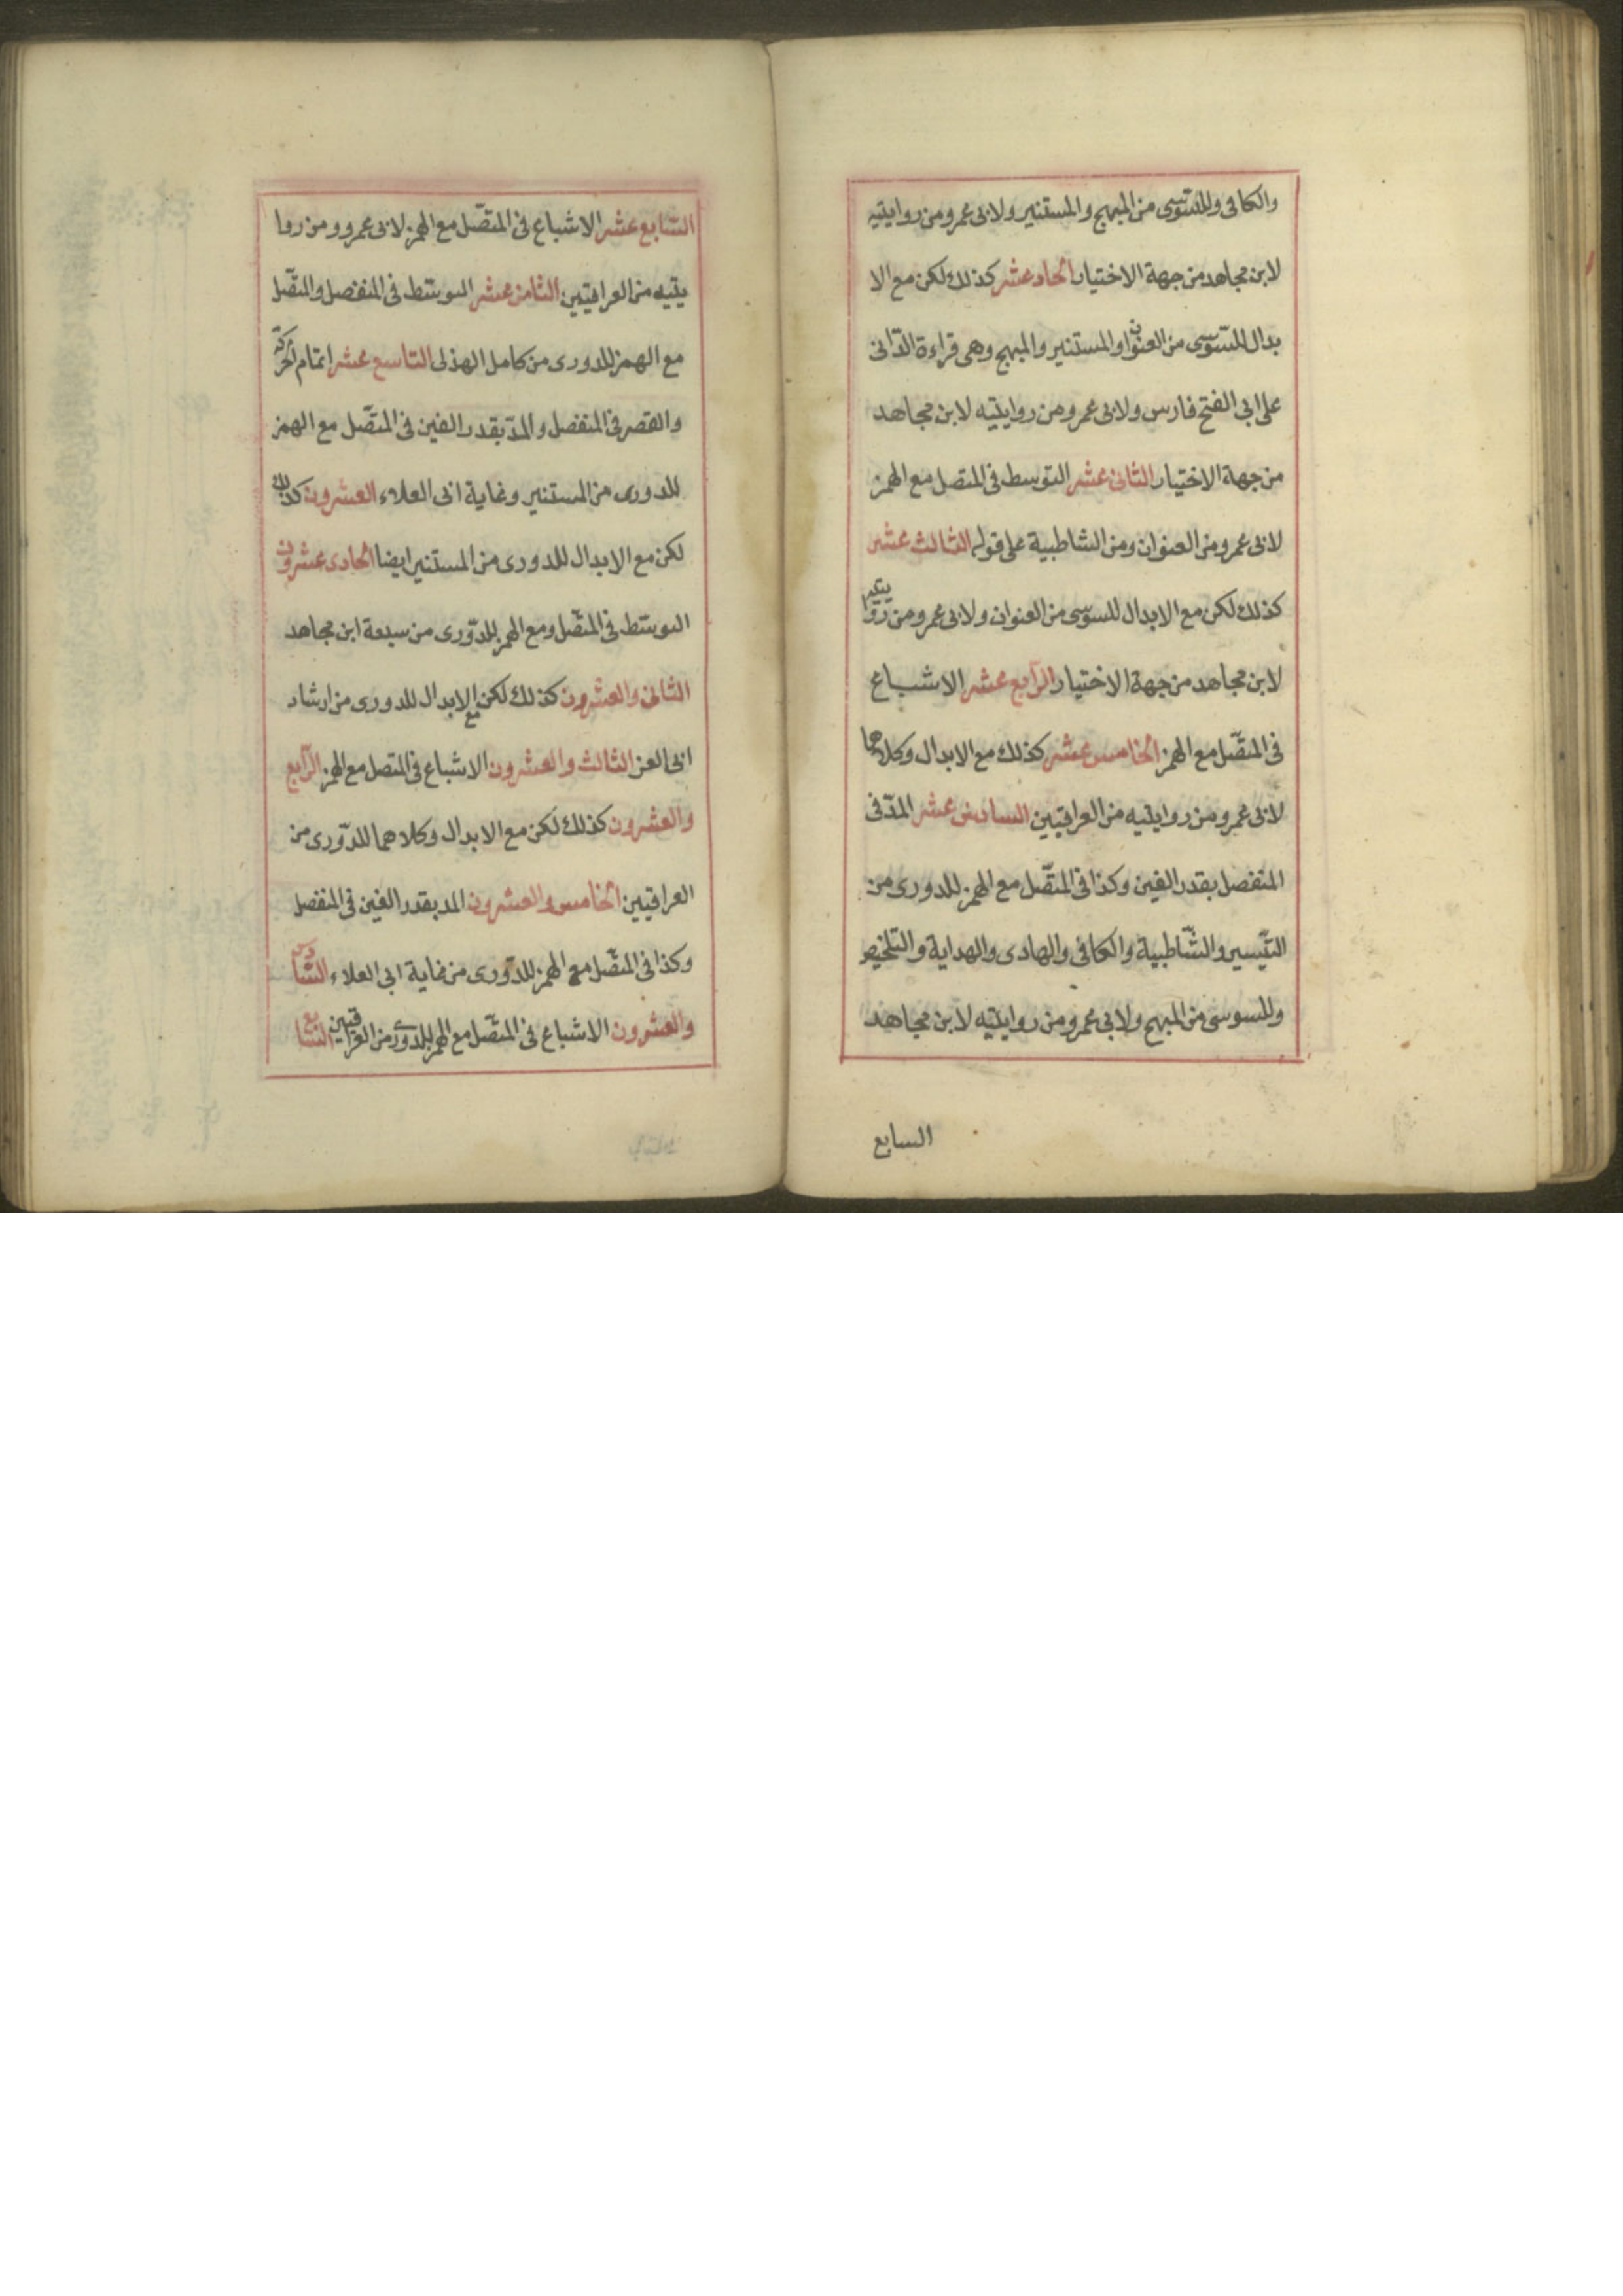 والكافى وللسّوسى من المبهج والمستنير ولابى عمرو من روايتيه
لابن مجاهد من جهة الاختيار الحاد عشر كذلك لكن مع الا
بدال للسّوسى من العنوان والمستنير والمبهج وهى قراءة الدّانى
على ابى الفتح فارس ولابى عمرو من روايتيه لابن مجاهد
من جهة الاختيار الثانى عشر التوسط فى المتصل مع الهمز
لابى عمرو من العنوان ومن الشاطبية على قوله الثالث عشر
كذلك لكن مع الابدال للسوسى من العنوان ولابى عمرو من روايتيه
لابن مجاهد من جهة الاختيار الرّابع عشر الاشباع
فى المتّصل مع الهمز الخامس عشر كذلك مع الابدال وكلاهما
لابى عمرو من روايتيه من العراقيين السادس عشر المدّ فى
المنفصل بقدر الفين وكذا فى المتّصل مع الهمز للدورى من
التّيسير والشّاطبية والكافى والهادى والهداية والتلخيص
وللسوسى من المبهج ولابى عمرو من روايتيه لابن مجاهد
السابع
السّابع عشر الاشباع فى المتّصل مع الهمز لابى عمرو ومن روا
يتيه من العراقيين الثامن عشر التوسّط فى المنفصل والمتّصل
مع الهمز للدورى من كامل الهذلى التاسع عشر اتمام الحركة
والقصر فى المنفصل والمدّ بقدر الفين فى المتّصل مع الهمز
للدورى من المستنير وغاية ابى العلاء العشرون كذلك
لكن مع الابدال للدورى من المستنير ايضا الحادى عشرون
التوسّط فى المتّصل ومع الهمز للدّورى من سبعة ابن مجاهد
الثانى والعشرون كذلك لكن مع الابدال للدورى من ارشاد
ابى العز الثالث والعشرون الاشباع فى المتصل مع الهمز الرّابع
والعشرون كذلك لكن مع الابدال وكلاهما للدّورى من
العراقيين الخامس والعشرون المد بقدر الفين فى المنفصل
وكذا فى المتّصل مع الهمز للدّورى من غاية ابى العلاء السّادس
والعشرون الاشباع فى المتّصل مع الهمز للدورى من العراقيين السّابع